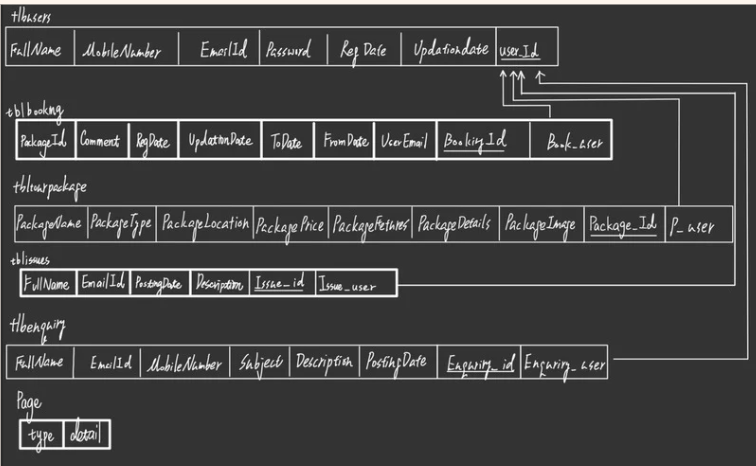 tlbusers
FullName MobileNumber EmailId Password Reg Date Updationdate user_Id
tblbookng
PackageId Comment RegDate UpdationDate ToDate FromDate UserEmail Booking_Id Book_user
tbltourpackage
PackageName PackageType PackageLocation PackagePrice PackageFetures PackageDetails PackageImage Package_Id P_user
tblissues
FullName EmailId PostingDate Description Issue_id Issue_user
tlbenquiry
FullName EmailId MobileNumber Subject Description PostingDate Enquriry_id Enquriry_user
Page
type detail